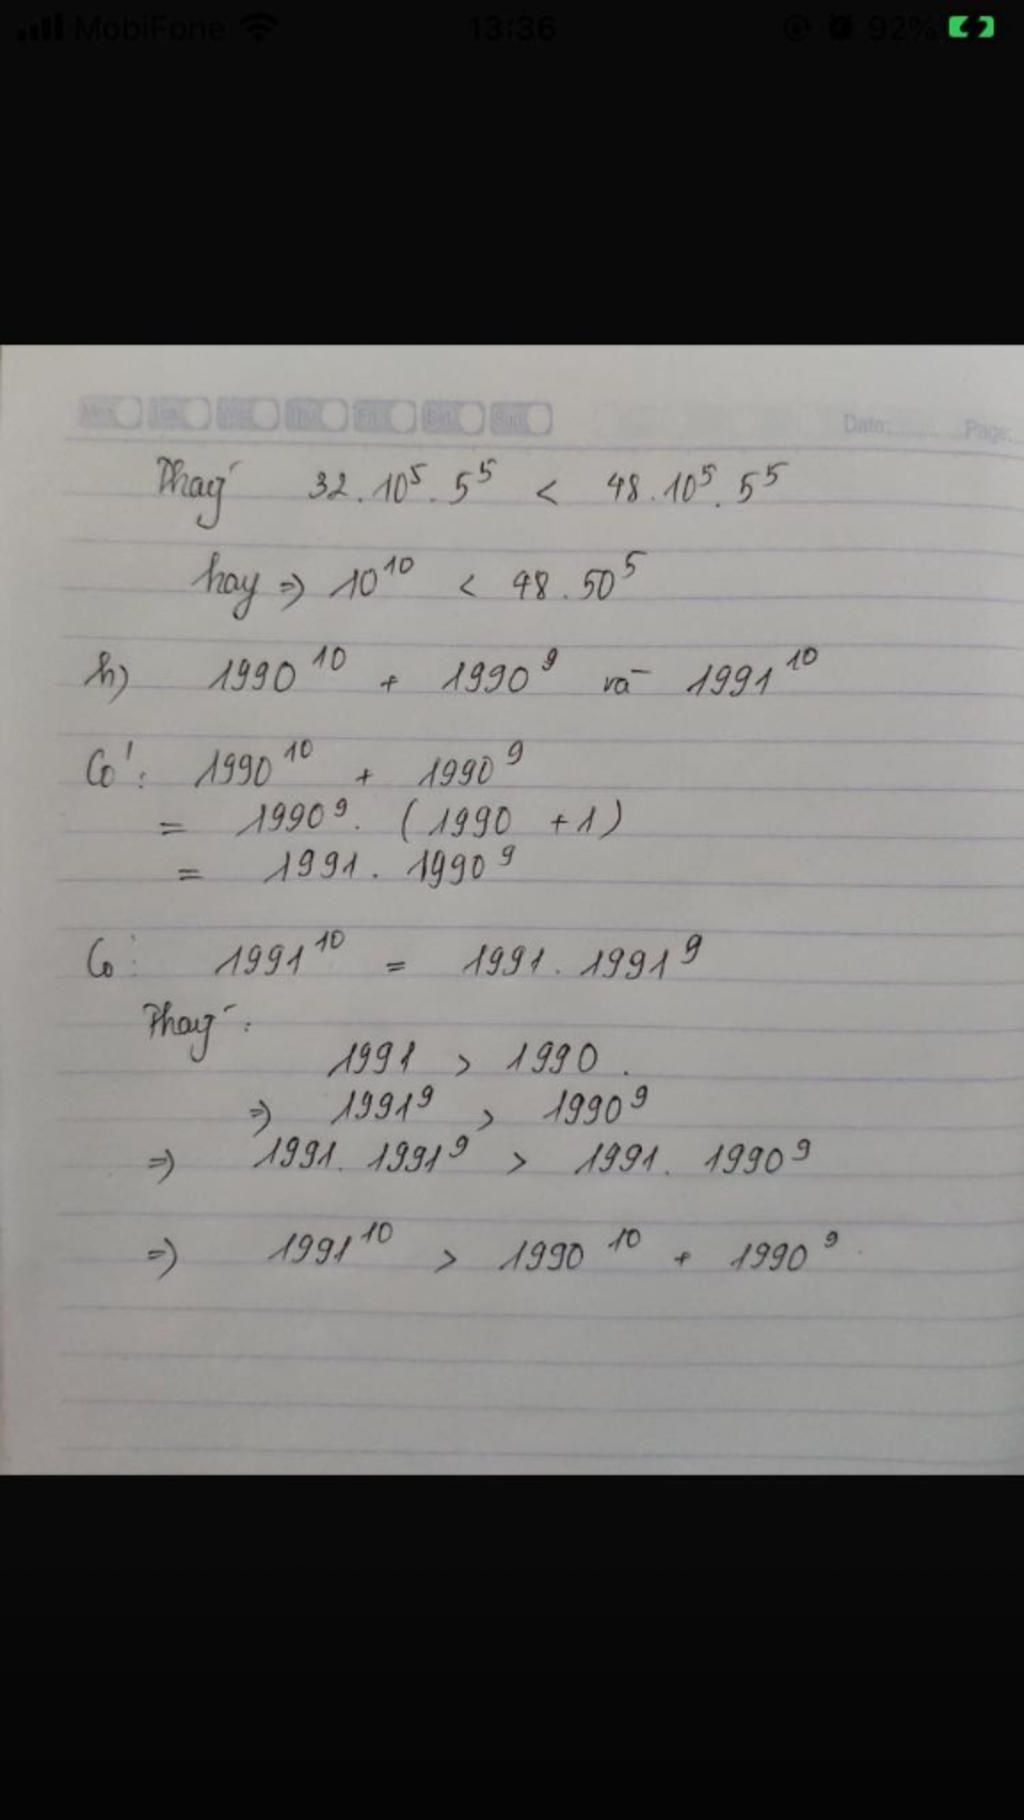 MobiFone 13:36 92%
Mon Tue Wed Thu Fri Sat Sun Date: Page:
Thấy 32.10⁵.5⁵ < 48.10⁵.5⁵
hay => 10¹⁰ < 48.50⁵
h) 1990¹⁰ + 1990⁹ và 1991¹⁰
Có: 1990¹⁰ + 1990⁹
= 1990⁹. (1990 +1)
= 1991. 1990⁹
Có: 1991¹⁰ = 1991. 1991⁹
Thấy:
1991 > 1990.
=> 1991⁹ > 1990⁹
=> 1991. 1991⁹ > 1991. 1990⁹
=> 1991¹⁰ > 1990¹⁰ + 1990⁹.